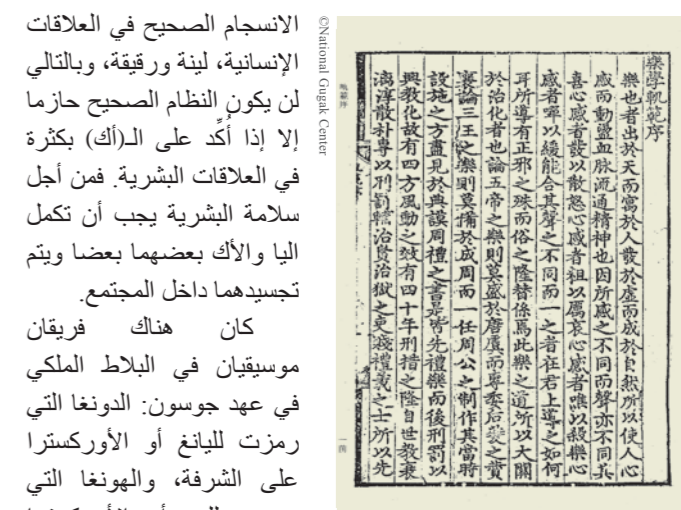 الانسجام الصحيح في العلاقات
الإنسانية، لينة ورقيقة، وبالتالي
لن يكون النظام الصحيح حازما
إلا إذا أُكِّد على الـ(أك) بكثرة
في العلاقات البشرية. فمن أجل
سلامة البشرية يجب أن تكمل
اليا والأك بعضهما بعضا ويتم
تجسيدهما داخل المجتمع.
كان هناك فريقان
موسيقيان في البلاط الملكي
في عهد جوسون: الدونغا التي
رمزت لليانغ أو الأوركسترا
على الشرفة، والهونغا التي
©National Gugak Center
樂學軌範序
樂也者出於天而寓於人發於虛而成於自然所以使人心
感而動盪血脉流通精神也因所感之不同而聲亦不同其
喜心感者發以散怒心感者粗以厲哀心感者噍以殺樂心
感者嘽以緩能合其聲之不同而一之者在君上導之如何
耳所導有正邪之殊而俗之隆替係焉此樂之道所以大關
於治化者也論五帝之樂則莫盛於唐虞而專委后夔之贊
襄論三王之樂則莫備於成周而一任周公之制作其當時
設施之方盡見於典謨周禮之書是皆先禮樂而後刑罰以
興教化故有四方風動之效有四十年刑措之隆自世敎衰
漓淳散朴專以刑罰輔治賢治獄之吏賤禮義之士所以先